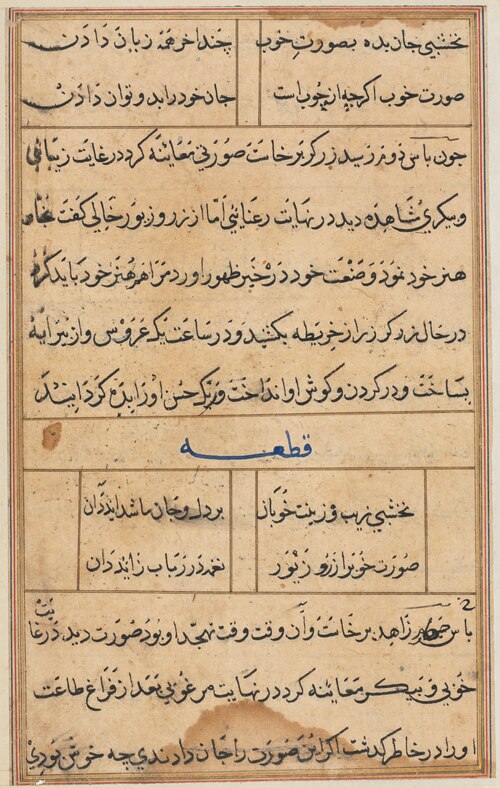 نخشبی جان بده بصورت خوب چند اخر همه زبان دادن
صورت خوب اکرچه از چوب است جان خود را بدو توان دادن
چون پاس دوم رسید زرکر برخاست صورتی معاینه کرد در غایت زیبائی
و پیکری مشاهده دید در نهایت رعنائی اما از زر و زیور خالی کفت
هنر خود نمود و صنعت خود در خیر ظهور اورد مرا هم هنر خود باید کرد
در حال زرکر زر از خریطه بکشید و در ساعت یک عروس واز پیرایه
بساخت و در کردن و کوش او انداخت و رنک حسن او را بده کردانید
قطعه
نخشبی زیب و زینت خوبان بر دل و جان ما شد اند دان
صورت خوب را زر و زیور نغمه در رباب زاید دان
پاس زاهد برخاست وآن وقت وقت تهجد او بود صورت دید در غایت
خوبی و پیکر معاینه کرد در نهایت مرغوبی بعد از فراغ طاعت
اورا در خاطر کذشت اکر این صورت را جان دادندی چه خوش بودی